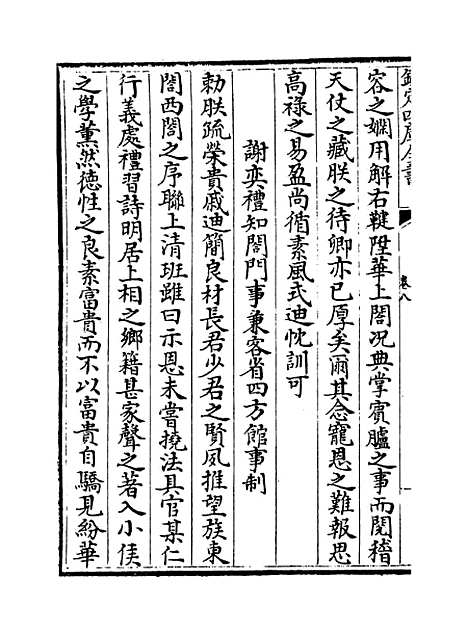 欽定四庫全書
卷八
容之嫻用解右鞬陞華上閤况典掌賓臚之事而閱稽
天仗之藏朕之待卿亦已厚矣爾其念寵恩之難報思
高祿之易盈尚循素風式迪忱訓可
謝奕禮知閤門事兼客省四方館事制
勅朕疏榮貴戚迪簡良材長君少君之賢夙推望族東
閤西閤之序聯上清班雖曰示恩未嘗撓法具官某仁
行義處禮習詩明居上相之鄉籍甚家聲之著入小侯
之學薰然德性之良素富貴而不以富貴自驕見紛華